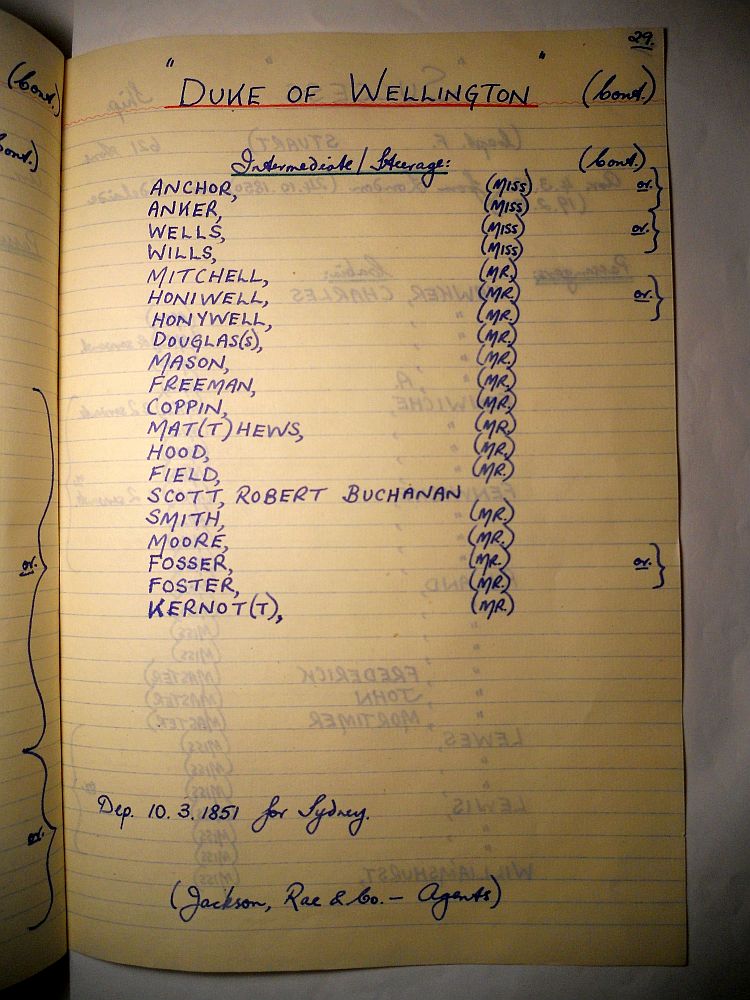 29.
"DUKE OF WELLINGTON" (Cont.)
Intermediate/Steerage: (Cont.)
ANCHOR, (MISS) or.
ANKER, (MISS)
WELLS, (MISS) or.
WILLS, (MISS)
MITCHELL, (MR.)
HONIWELL, (MR.) or.
HONYWELL, (MR.)
DOUGLAS(S), (MR.)
MASON, (MR.)
FREEMAN, (MR.)
COPPIN, (MR.)
MAT(T)HEWS, (MR.)
HOOD, (MR.)
FIELD, (MR.)
SCOTT, ROBERT BUCHANAN
SMITH, (MR.)
MOORE, (MR.)
FOSSER, (MR.) or.
FOSTER, (MR.)
KERNOT(T), (MR.)
Dep. 10.3.1851 for Sydney.
(Jackson, Rae & Co. — Agents)
(Cont.)
Cont.)
or.
or.